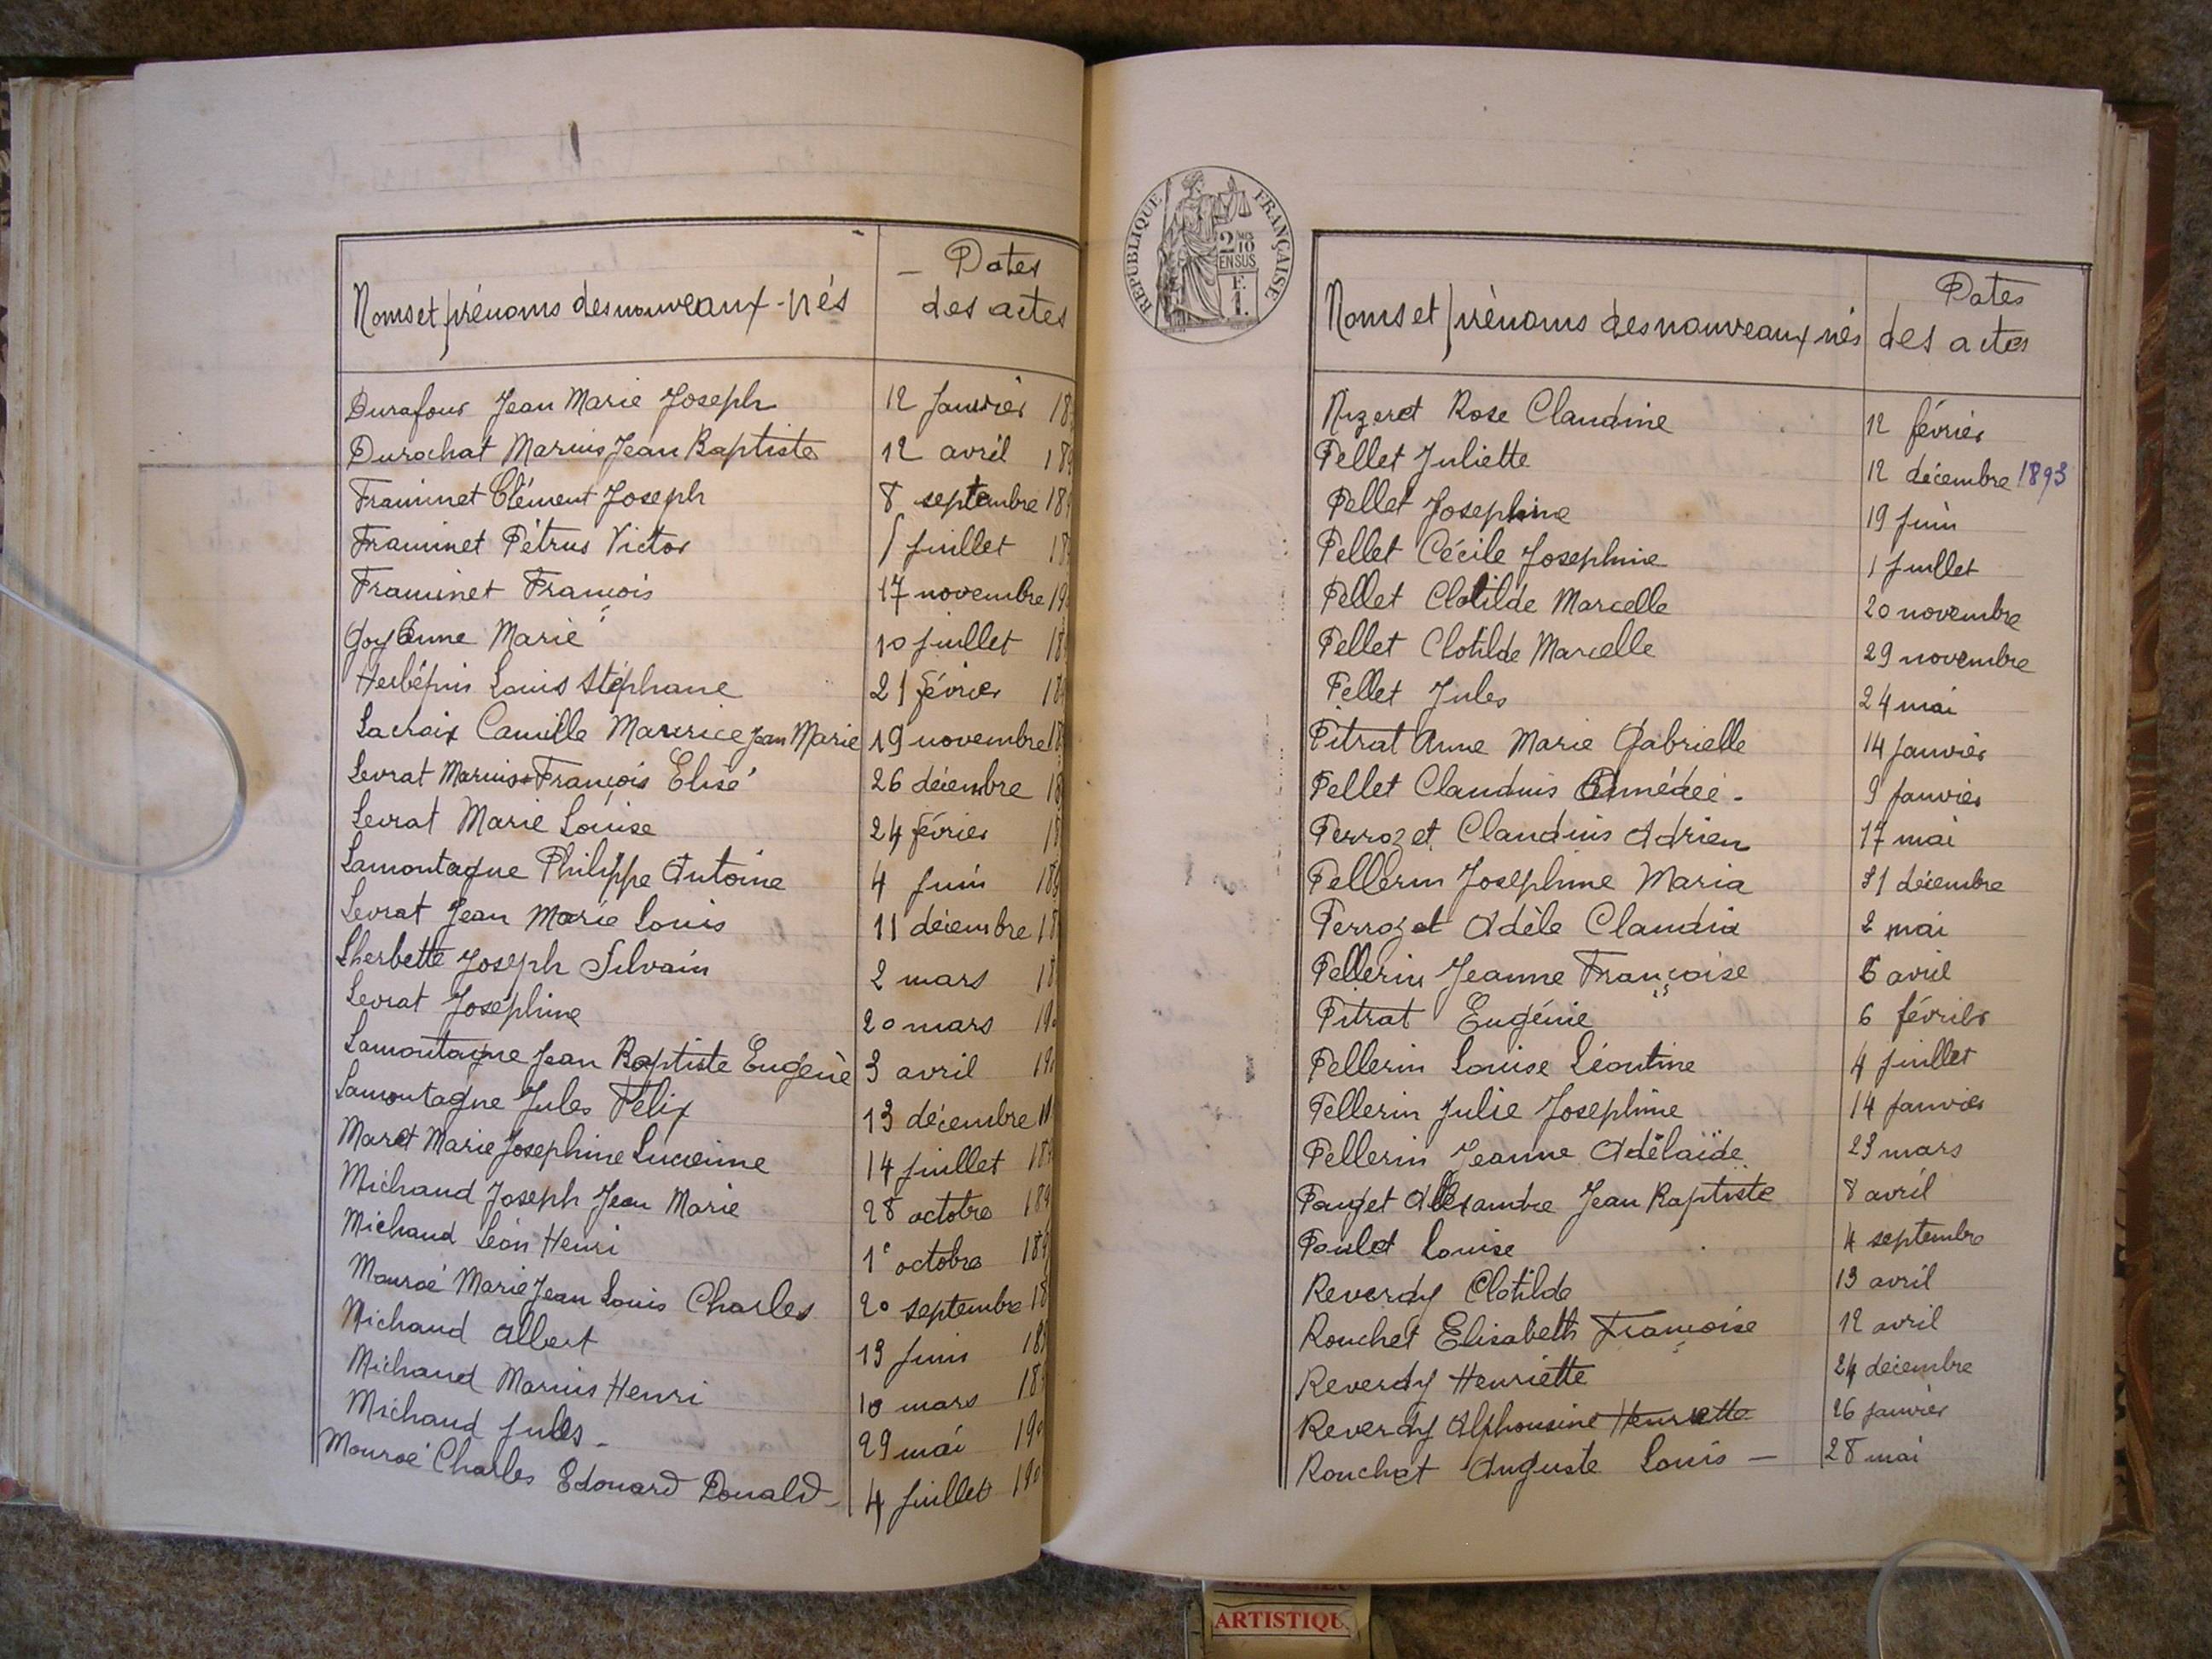 Noms et prénoms des nouveaux-nés
Dates
des actes
Durafour Jean Marie Joseph 12 Janvier 18
Durochat Marius Jean Baptiste 12 avril 18
Framinet Clément Joseph 8 septembre 18
Framinet Pétrus Victor 1 juillet 18
Framinet François 17 novembre 19
Goy Anne Marie 10 juillet 18
Herbépin Louis Stéphane 21 février 18
Lacroix Camille Maurice Jean Marie 19 novembre 18
Levrat Marius François Elisé 26 décembre 18
Levrat Marie Louise 24 février 18
Lamontagne Philippe Antoine 4 Juin 18
Levrat Jean Marie Louis 11 décembre 18
Lherbette Joseph Silvain 2 mars 18
Levrat Joséphine 20 mars 19
Lamontagne Jean Baptiste Eugène 3 avril 19
Lamontagne Jules Félix 13 décembre
Maret Marie Josephine Lucienne 14 juillet 18
Michaud Joseph Jean Marie 28 octobre 189
Michaud Léon Henri 1e octobre 18
Monroé Marie Jean Louis Charles 20 septembre 18
Michaud Albert 13 juin 18
Michaud Marius Henri 10 mars 18
Michaud Jules - 29 mai 19
Monroé Charles Edouard Donald - 4 juillet 19
REPUBLIQUE FRANÇAISE
2 MES
10
EN SUS
F.
1.
Noms et prénoms des nouveaux nés
Dates
des actes
Nizeret Rose Claudine 12 février
Pellet Juliette 12 décembre 1893
Pellet Josephine 19 juin
Pellet Cécile Josephine 1 juillet
Pellet Clotilde Marcelle 20 novembre
Pellet Clotilde Marcelle 29 novembre
Pellet Jules 24 mai
Pitrat Anne Marie Gabrielle 14 Janvier
Pellet Claudius Amédée - 9 Janvier
Perrozet Claudius Adrien 17 mai
Pellerin Josephine Maria 31 décembre
Perrozet Adèle Claudia 2 mai
Pellerin Jeanne Françoise 6 avril
Pitrat Eugénie 6 février
Pellerin Louise Léontine 4 juillet
Pellerin Julie Josephine 14 Janvier
Pellerin Jeanne Adélaïde 23 mars
Pouget Alexandre Jean Baptiste 8 avril
Poulet Louise 4 septembre
Reverdy Clotilde 13 avril
Rouchet Elisabeth Françoise 12 avril
Reverdy Henriette 24 décembre
Reverdy Alphonsine Henriette 26 janvier
Rouchet Auguste Louis - 28 mai
ARTISTIQU